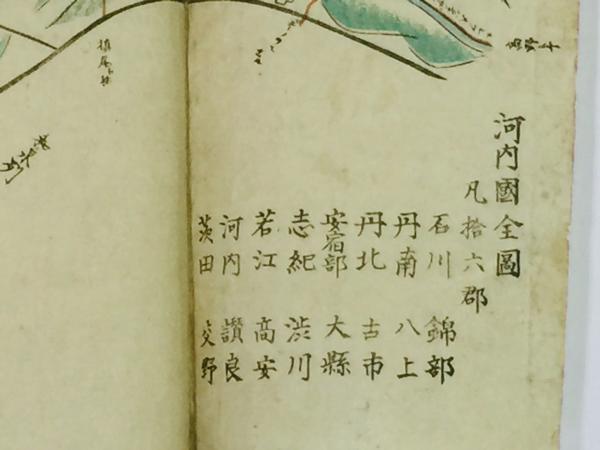 河内國全圖
凡拾六郡
石川 錦部
丹南 八上
丹北 古市
安宿部 大縣
志紀 渋川
若江 高安
河内 讃良
茨田 交野